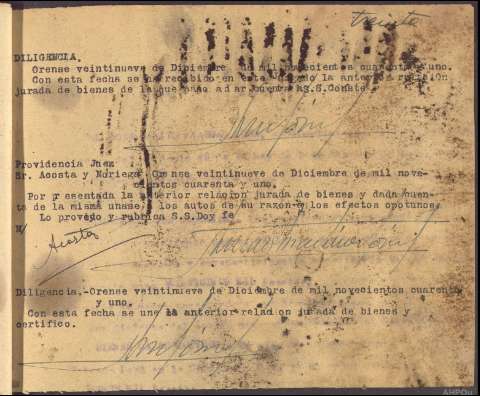 treinta
DILIGENCIA.
Orense veintinueve de Diciembre de mil novecientos cuarenta y uno.
Con esta fecha se ha recibido en este Juzgado la anterior relacion
jurada de bienes de la que paso a dar cuenta a S.S. Conste
Providencia Juez
Sr. Acosta y Noriega Orense veintinueve de Diciembre de mil nove-
cientos cuarenta y uno.
Por presentada la anterior relacion jurada de bienes y dada cuen-
ta de la misma unase a los autos de su razon a los efectos opotunos.
Lo proveyo y rubrica S.S. Doy fe
M/
Acosta
Diligencia.-Orense veintinueve de Diciembre de mil novecientos cuarenta
y uno.
Con esta fecha se une la anterior relacion jurada de bienes y
certifico.
AHPOu